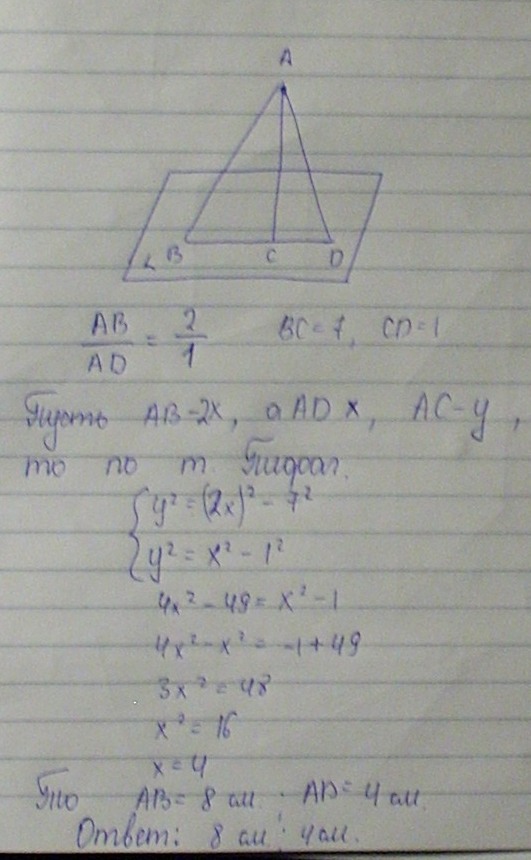 A
L B C D
AB/AD = 2/1 BC=7, CD=1
Пусть AB-2x, а AD x, AC-y,
то по т. Пифаг.
{ y² = (2x)² - 7²
y² = x² - 1²
4x² - 49 = x² - 1
4x² - x² = -1 + 49
3x² = 48
x² = 16
x = 4
То AB = 8 см. AD = 4 см.
Ответ: 8 см; 4 см.